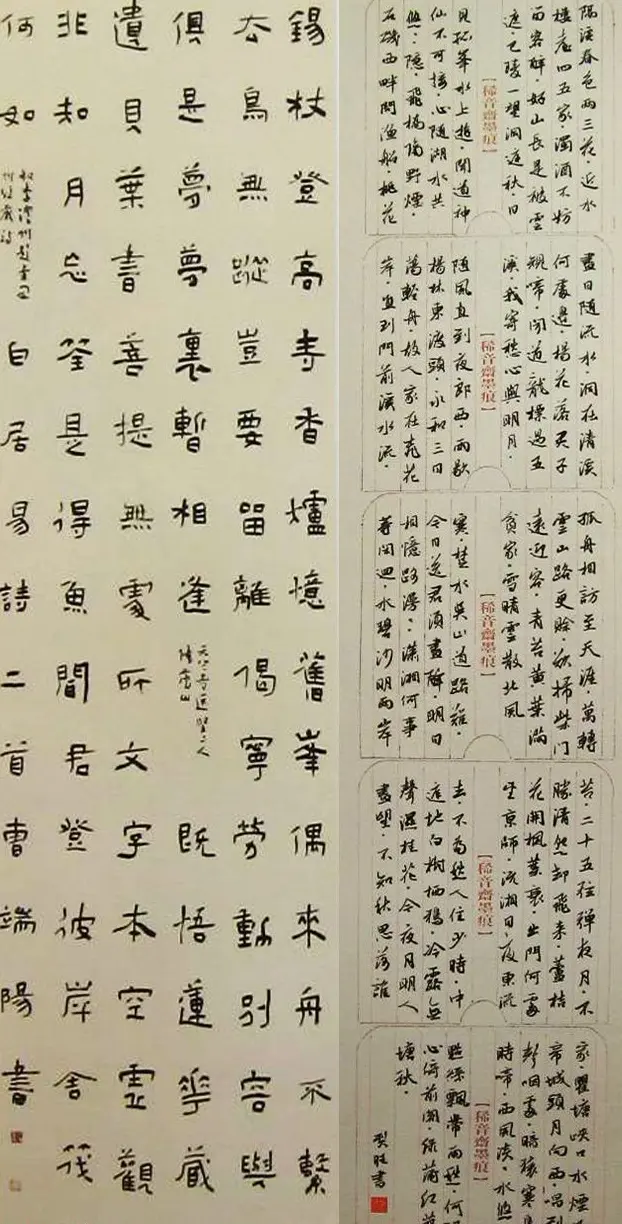 錫杖登高寺香爐憶舊峯偶來舟不繫
厺鳥無蹤豈要留離偈寧勞動別容與
俱是夢夢裏暫相逢
天竺寺送堅上人
歸廬山
既悟蓮華藏
遺貝葉書菩提無處所文字本空虛觀
非知月忘筌是得魚聞君登彼岸舍筏
何如
和李澧州題韋開
州經藏詩
白居易詩二首曹端陽書
隔溪春色兩三花。近水
樓臺四五家。濁酒不妨
留客醉。好山長是被雲
遮。巴陵一望洞庭秋。日
【稀音齋墨痕】
見孤峯水上浮。聞道神
仙不可接。心隨湖水共
悠悠。隱隱飛橋隔野煙。
石磯西畔問漁船。桃花
盡日隨流水。洞在清溪
何處邊。楊花落盡子
規啼。聞道龍標過五
溪。我寄愁心與明月。
【稀音齋墨痕】
隨風直到夜郎西。雨歇
楊林東渡頭。永和三日
蕩輕舟。故人家在桃花
岸。直到門前溪水流。
孤舟相訪至天涯。萬轉
雲山路更賒。欲掃柴門
遠迎客。青苔黃葉滿
貧家。雪晴雲散北風
【稀音齋墨痕】
寒。楚水吳山道路難。
今日送君須盡醉。明日
相憶路漫漫。瀟湘何事
等閑迴。水碧沙明兩岸
苔。二十五弦彈夜月。不
勝清怨卻飛來。蘆桔
花開楓葉衰。出門何處
望京師。沅湘日夜東流
【稀音齋墨痕】
去。不為愁人住少時。中
庭地白樹栖鴉。冷露無
聲濕桂花。今夜月明人
盡望。不知秋思落誰
家。瞿塘峽口水煙
帝城頭月向西。唱到
聲咽處。暗猿寒鳥
時啼。西風淡淡水悠
【稀音齋墨痕】
點絲飄帶雨愁。何
心倚前閣。綠蒲紅
塘秋。